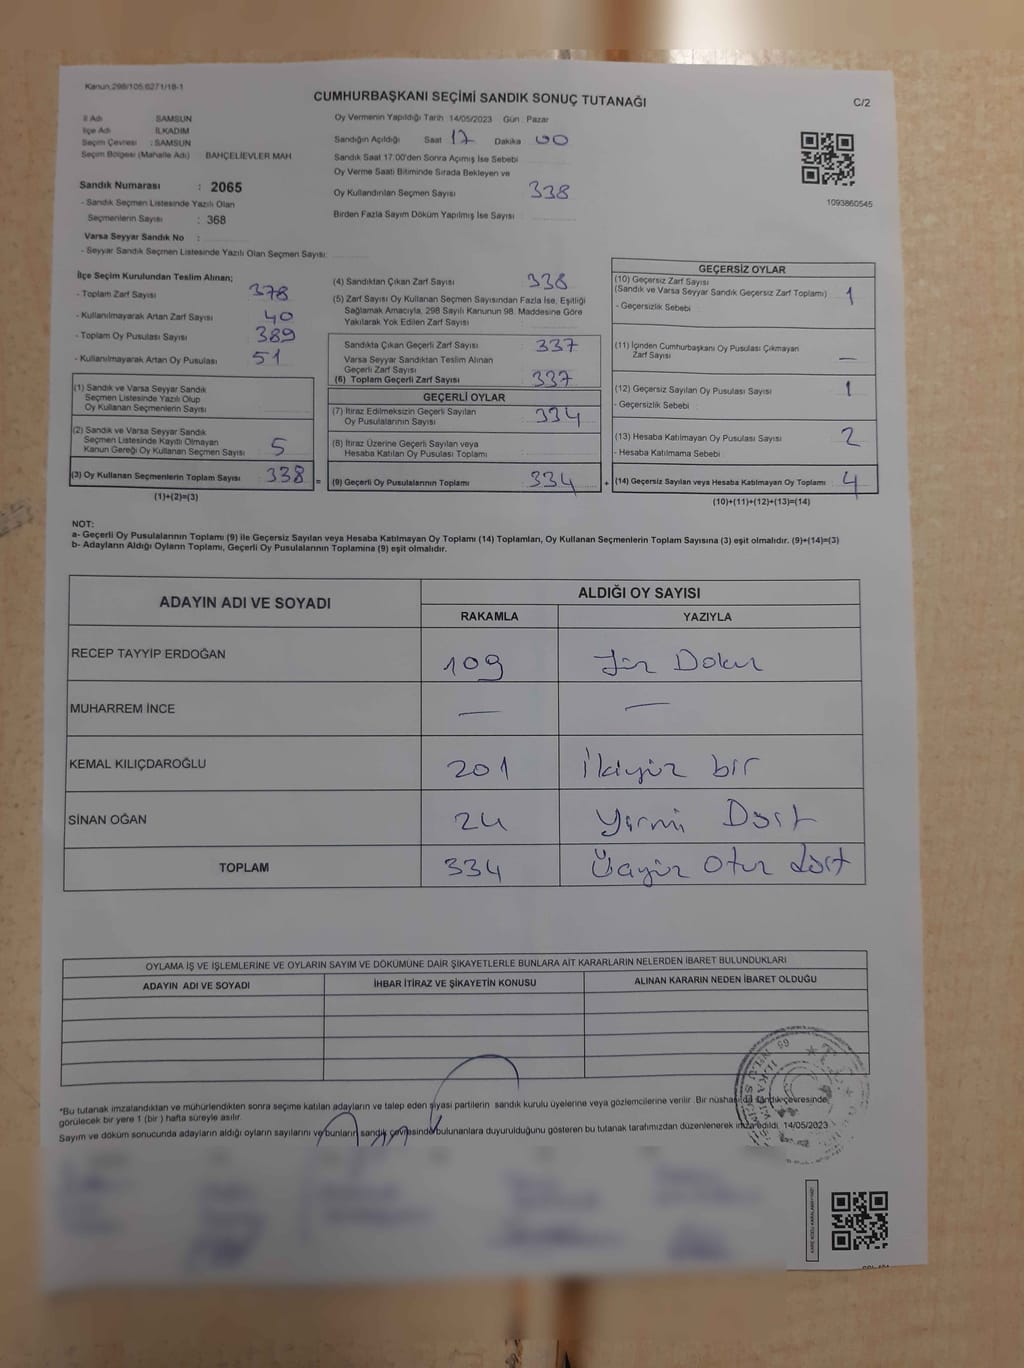 Kanun.298/105,6271/18-1
CUMHURBAŞKANI SEÇİMİ SANDIK SONUÇ TUTANAĞI
C/2
İl Adı SAMSUN
İlçe Adı İLKADIM
Seçim Çevresi : SAMSUN
Seçim Bölgesi (Mahalle Adı) BAHÇELİEVLER MAH
Sandık Numarası : 2065
- Sandık Seçmen Listesinde Yazılı Olan
Seçmenlerin Sayısı : 368
Varsa Seyyar Sandık No :
- Seyyar Sandık Seçmen Listesinde Yazılı Olan Seçmen Sayısı:
Oy Vermenin Yapıldığı Tarih 14/05/2023 Gün : Pazar
Sandığın Açıldığı Saat 17 Dakika 00
Sandık Saat 17.00'den Sonra Açımış İse Sebebi
Oy Verme Saati Bitiminde Sırada Bekleyen ve
Oy Kullandırılan Seçmen Sayısı 338
Birden Fazla Sayım Döküm Yapılmış İse Sayısı
1093860545
İlçe Seçim Kurulundan Teslim Alınan;
- Toplam Zarf Sayısı 378
- Kullanılmayarak Artan Zarf Sayısı 40
- Toplam Oy Pusulası Sayısı 389
- Kullanılmayarak Artan Oy Pusulası 51
(1) Sandık ve Varsa Seyyar Sandık
Seçmen Listesinde Yazılı Olup
Oy Kullanan Seçmenlerin Sayısı
(2) Sandık ve Varsa Seyyar Sandık
Seçmen Listesinde Kayıtlı Olmayan
Kanun Gereği Oy Kullanan Seçmen Sayısı 5
(3) Oy Kullanan Seçmenlerin Toplam Sayısı 338 =
(1)+(2)=(3)
(4) Sandıktan Çıkan Zarf Sayısı 338
(5) Zarf Sayısı Oy Kullanan Seçmen Sayısından Fazla İse, Eşitliği
Sağlamak Amacıyla, 298 Sayılı Kanunun 98. Maddesine Göre
Yakılarak Yok Edilen Zarf Sayısı
Sandıkta Çıkan Geçerli Zarf Sayısı 337
Varsa Seyyar Sandıktan Teslim Alınan
Geçerli Zarf Sayısı
(6) Toplam Geçerli Zarf Sayısı 337
GEÇERLİ OYLAR
(7) İtiraz Edilmeksizin Geçerli Sayılan
Oy Pusulalarının Sayısı 334
(8) İtiraz Üzerine Geçerli Sayılan veya
Hesaba Katılan Oy Pusulası Toplamı
(9) Geçerli Oy Pusulalarının Toplamı 334 +
GEÇERSİZ OYLAR
(10) Geçersiz Zarf Sayısı
(Sandık ve Varsa Seyyar Sandık Geçersiz Zarf Toplamı) 1
- Geçersizlik Sebebi
(11) İçinden Cumhurbaşkanı Oy Pusulası Çıkmayan
Zarf Sayısı —
(12) Geçersiz Sayılan Oy Pusulası Sayısı 1
- Geçersizlik Sebebi
(13) Hesaba Katılmayan Oy Pusulası Sayısı 2
- Hesaba Katılmama Sebebi
(14) Geçersiz Sayılan veya Hesaba Katılmayan Oy Toplamı 4
(10)+(11)+(12)+(13)=(14)
NOT:
a- Geçerli Oy Pusulalarının Toplamı (9) ile Geçersiz Sayılan veya Hesaba Katılmayan Oy Toplamı (14) Toplamları, Oy Kullanan Seçmenlerin Toplam Sayısına (3) eşit olmalıdır. (9)+(14)=(3)
b- Adayların Aldığı Oyların Toplamı, Geçerli Oy Pusulalarının Toplamına (9) eşit olmalıdır.
ADAYIN ADI VE SOYADI ALDIĞI OY SAYISI
RAKAMLA YAZIYLA
RECEP TAYYİP ERDOĞAN 109 Yüz Dokuz
MUHARREM İNCE — —
KEMAL KILIÇDAROĞLU 201 İkiyüz bir
SİNAN OĞAN 24 Yirmi Dört
TOPLAM 334 Üçyüz Otuz dört
OYLAMA İŞ VE İŞLEMLERİNE VE OYLARIN SAYIM VE DÖKÜMÜNE DAİR ŞİKAYETLERLE BUNLARA AİT KARARLARIN NELERDEN İBARET BULUNDUKLARI
ADAYIN ADI VE SOYADI İHBAR İTİRAZ VE ŞİKAYETİN KONUSU ALINAN KARARIN NEDEN İBARET OLDUĞU
*Bu tutanak imzalandıktan ve mühürlendikten sonra seçime katılan adayların ve talep eden siyasi partilerin sandık kurulu üyelerine veya gözlemcilerine verilir. Bir nüshası da sandık çevresinde
görülecek bir yere 1 (bir) hafta süreyle asılır.
Sayım ve döküm sonucunda adayların aldığı oyların sayılarını ve bunların sandık çevresinde bulunanlara duyurulduğunu gösteren bu tutanak tarafımızdan düzenlenerek imza edildi. 14/05/2023